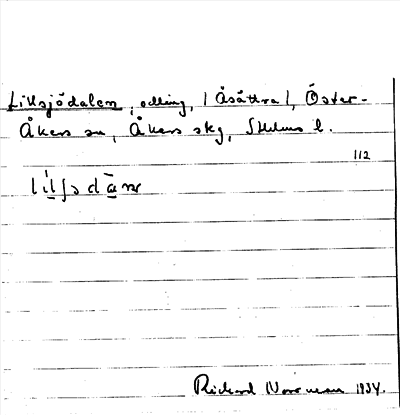 Lillsjödalen, odling, (Åsättra), Öster-
Åkers sn, Åkers skg, Sthlms l.
112
Rickard Norrman 1934.